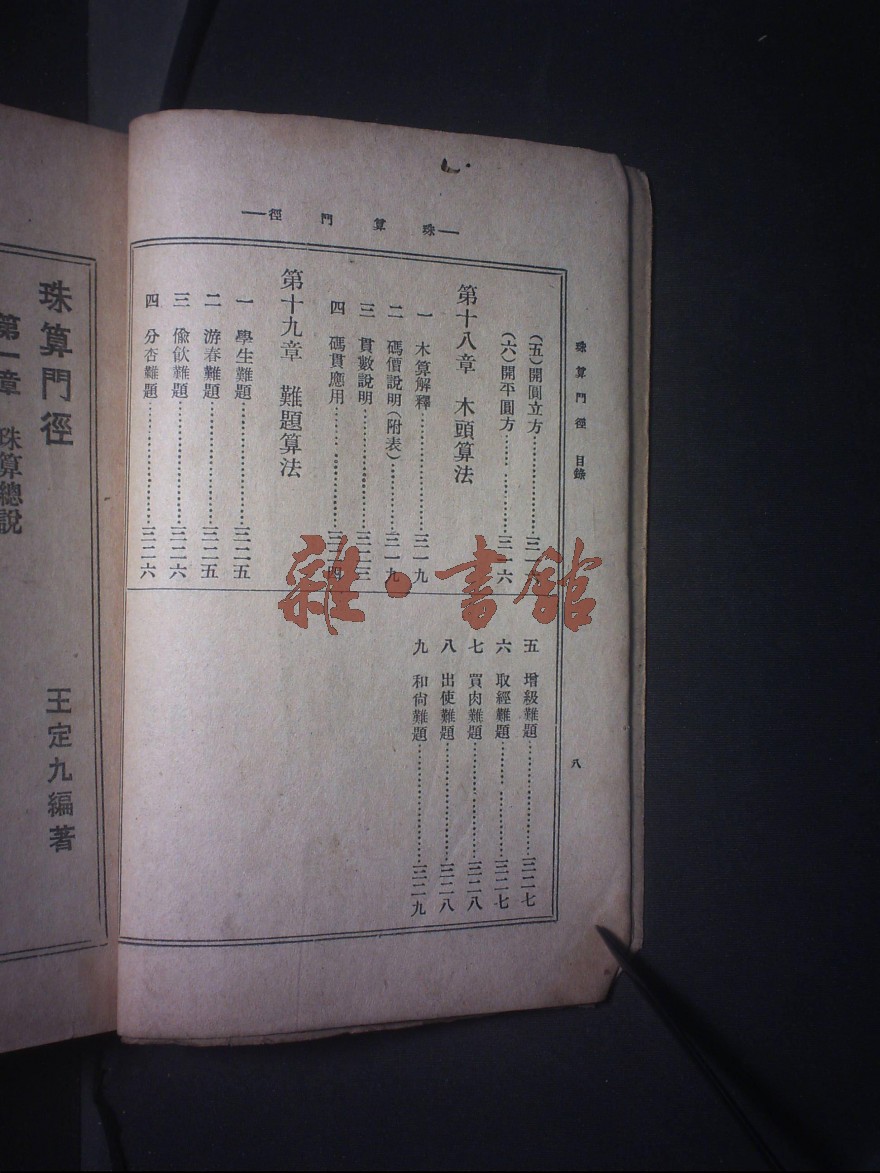 —珠算門徑—
珠算門徑 目錄
八
(五)開圓立方
(六)開平圓方……三一六
第十八章 木頭算法
一 木算解釋……三一九
二 碼價說明(附表)……三一九
三 貫數說明……三二三
四 碼貫應用
第十九章 難題算法
一 學生難題……三二五
二 游春難題……三二五
三 偷飲難題……三二六
四 分杏難題……三二六
五 增級難題……三二七
六 取經難題……三二七
七 買肉難題……三二八
八 出使難題……三二八
九 和尙難題……三二九
珠算門徑
王定九編著
第一章 珠算總說
雜·書館